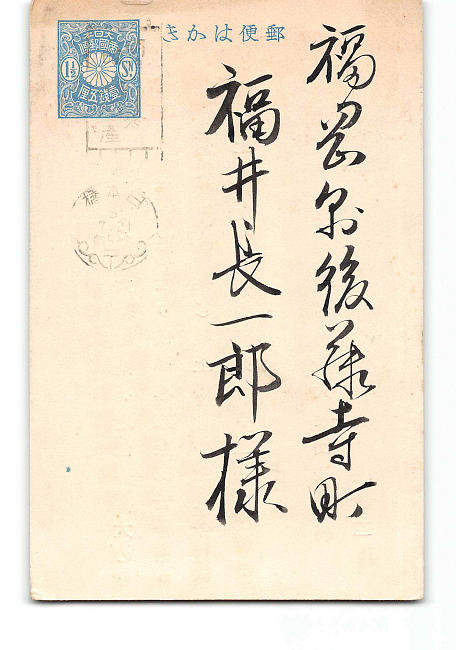 郵便はかき
大日本
帝國郵便
1½ Sn.
壹銭五厘
福岡県後藤寺町
福井長一郎様
日本橋